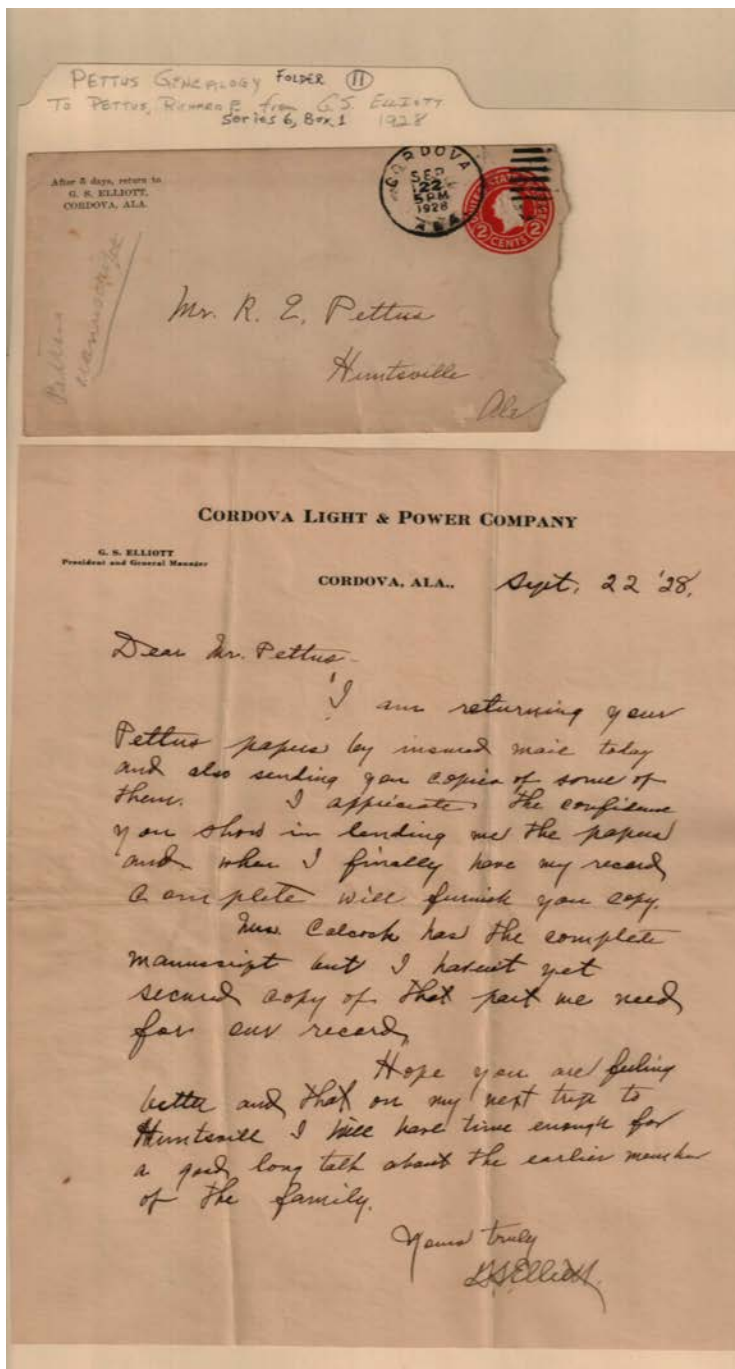 PETTUS GENEALOGY FOLDER 11
TO PETTUS, RICHARD E. from G.S. ELLIOTT
Series 6, Box 1 1928
After 5 days, return to
G. S. ELLIOTT,
CORDOVA, ALA.
CORDOVA
SEP
22
5 PM
1928
ALA
UNITED STATES
2 CENTS 2
Pettus
manuscript
Mr. R. E. Pettus
Huntsville
Ala
CORDOVA LIGHT & POWER COMPANY
G. S. ELLIOTT
President and General Manager
CORDOVA, ALA., Sept. 22 '28.
Dear Mr. Pettus-
I am returning your
Pettus papers by insured mail today
and also sending you copies of some of
them. I appriciate the confidence
you show in lending me the papers
and when I finally have my record
complete will furnish you copy.
Mrs. Colcock has the complete
manuscript but I havent yet
secured copy of that part we need
for our record.
Hope you are feeling
better and that on my next trip to
Huntsvill I will have time enough for
a good long talk about the earlier member
of the family.
Yours truly
G.S. Elliott.